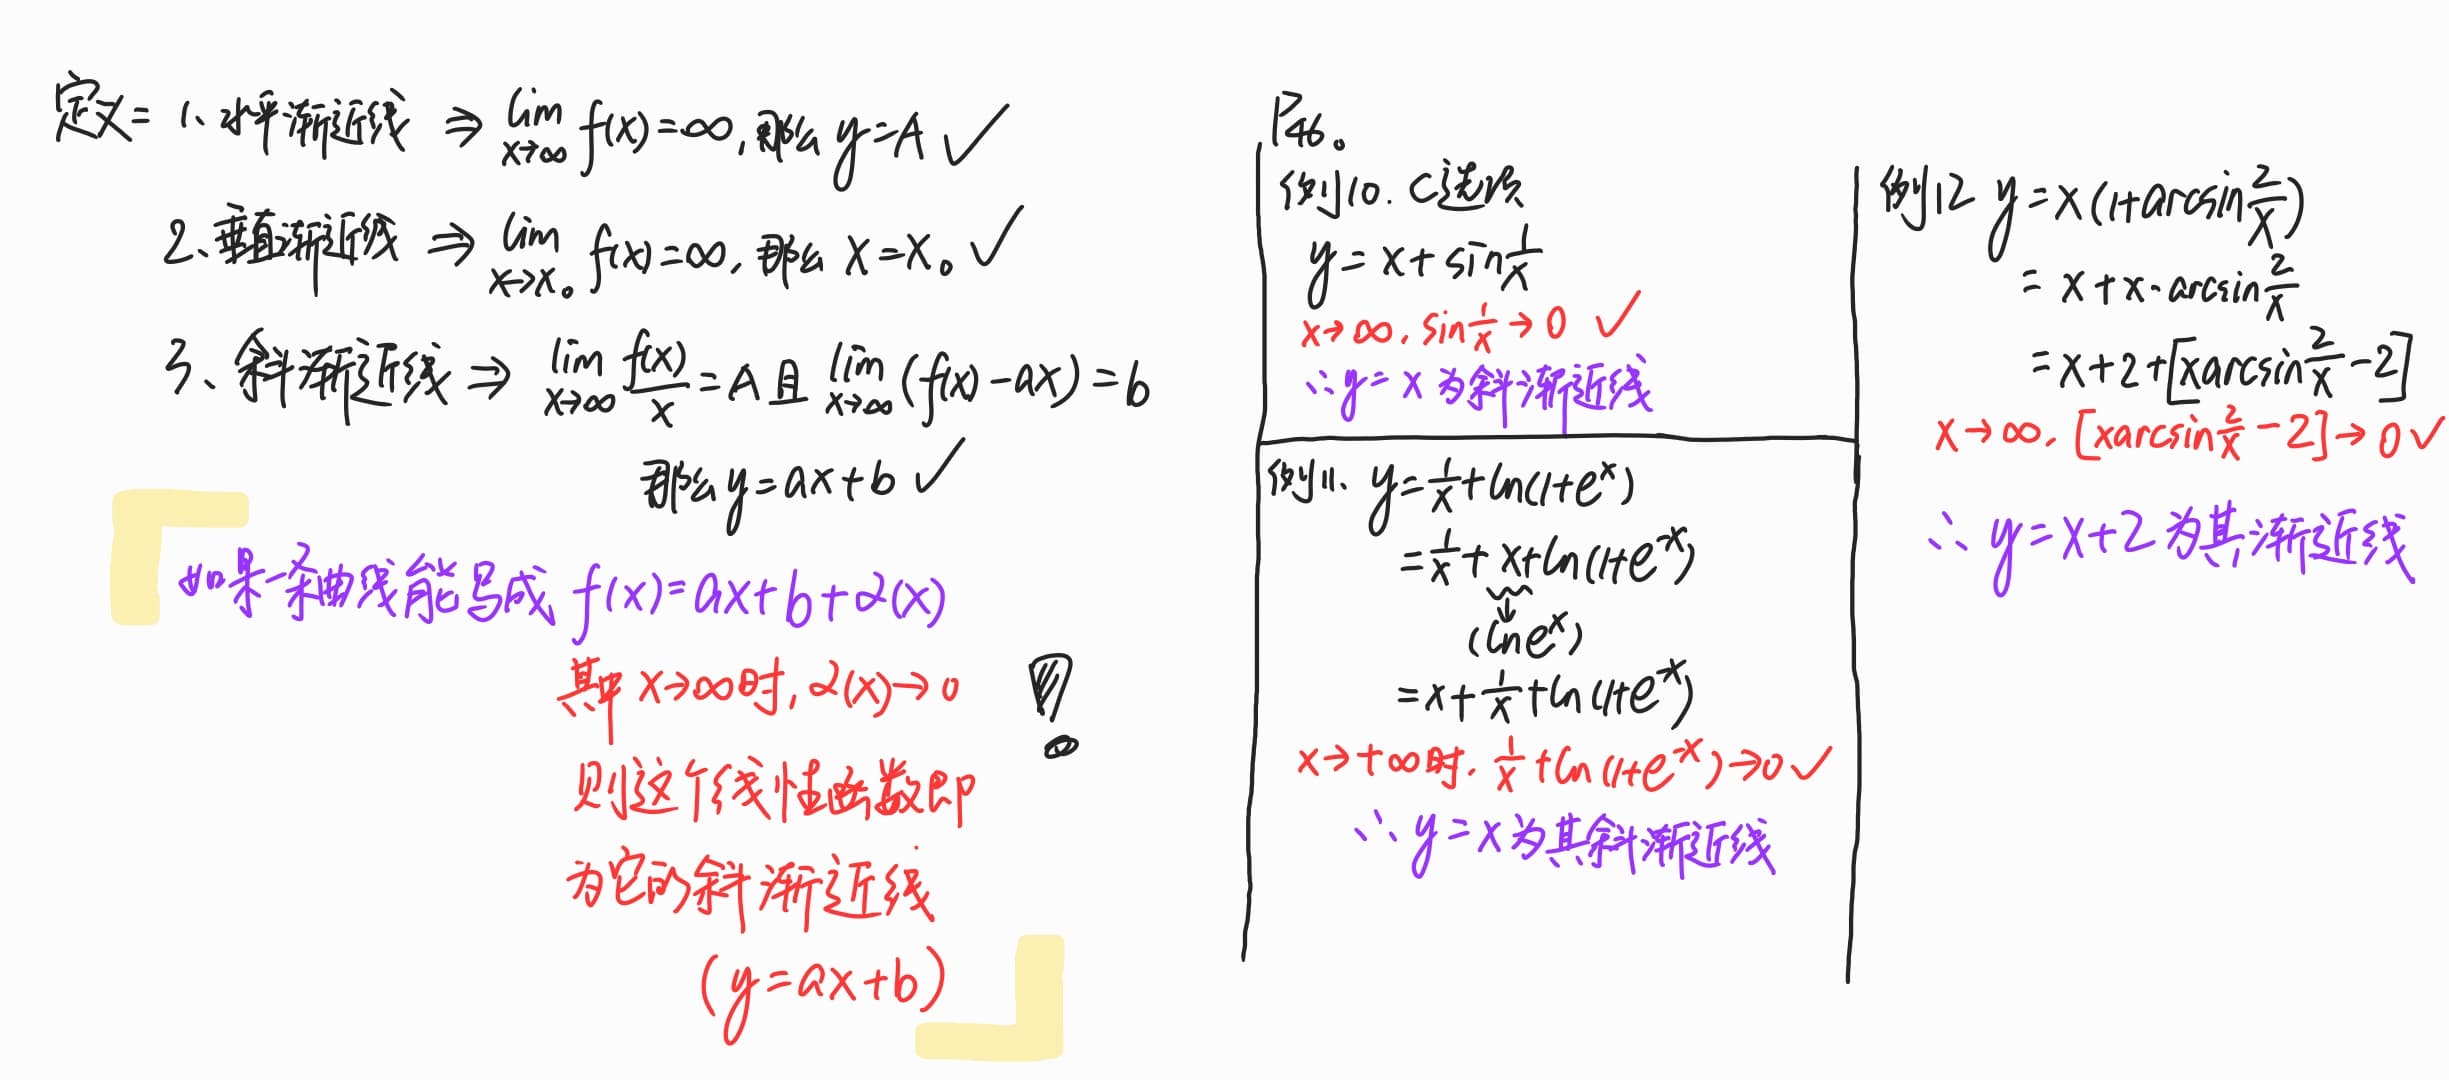 定义= 1、水平渐近线 ⇒ lim x→∞ f(x)=∞,那么 y=A ✓
2、垂直渐近线 ⇒ lim x→x₀ f(x)=∞,那么 x=x₀ ✓
3、斜渐近线 ⇒ lim x→∞ f(x)/x =A 且 lim x→∞ (f(x)-ax)=b
那么 y=ax+b ✓
如果一条曲线能写成 f(x)=ax+b+α(x)
其中 x→∞时,α(x)→0
则这个线性函数即
为它的斜渐近线
(y=ax+b)
!
P46。
例10. C选项
y=x+sin 1/x
x→∞,sin 1/x→0 ✓
∴y=x 为斜渐近线
例11、 y=1/x+ln(1+e^x)
=1/x+x+ln(1+e^-x)
↓
(lne^x)
=x+1/x+ln(1+e^-x)
x→+∞时,1/x+ln(1+e^-x)→0 ✓
∴y=x为其斜渐近线
例12 y=x(1+arcsin 2/x)
=x+x·arcsin 2/x
=x+2+[xarcsin 2/x-2]
x→∞,[xarcsin 2/x-2]→0 ✓
∴y=x+2 为其渐近线